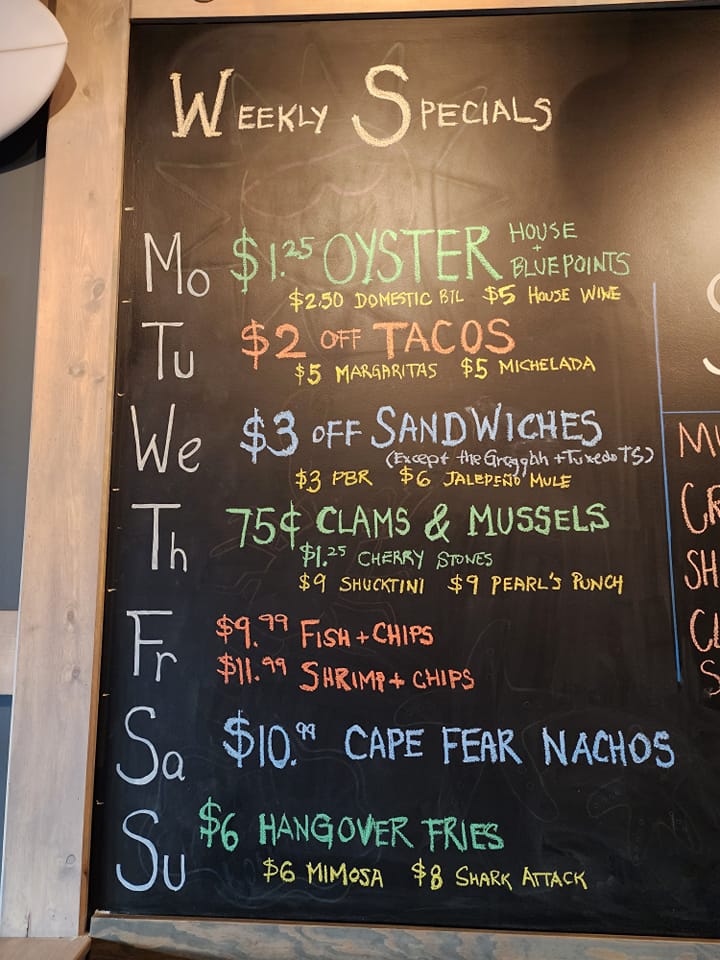 WEEKLY SPECIALS
Mo $1.25 OYSTER HOUSE + BLUEPOINTS
$2.50 DOMESTIC BTL $5 HOUSE WINE
Tu $2 OFF TACOS
$5 MARGARITAS $5 MICHELADA
We $3 OFF SANDWICHES
(Except the Groggbh + Tuxedo TS)
$3 PBR $6 JALEPEÑO MULE
Th 75¢ CLAMS & MUSSELS
$1.25 CHERRY STONES
$9 SHUCKTINI $9 PEARL'S PUNCH
Fr $9.99 FISH + CHIPS
$11.99 SHRIMP + CHIPS
Sa $10.99 CAPE FEAR NACHOS
Su $6 HANGOVER FRIES
$6 MIMOSA $8 SHARK ATTACK
S
MU
CR
SH
CL
S